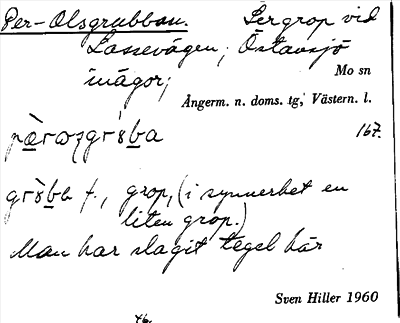 Per-Olsgrubban. Lergrop vid
Lassevägen, Östansjö
inägor;
Mo sn
Ångerm. n. doms. tg, Västern. l.
167.
grop, (i synnerhet en
liten grop.)
Man har slagit tegel här
Sven Hiller 1960